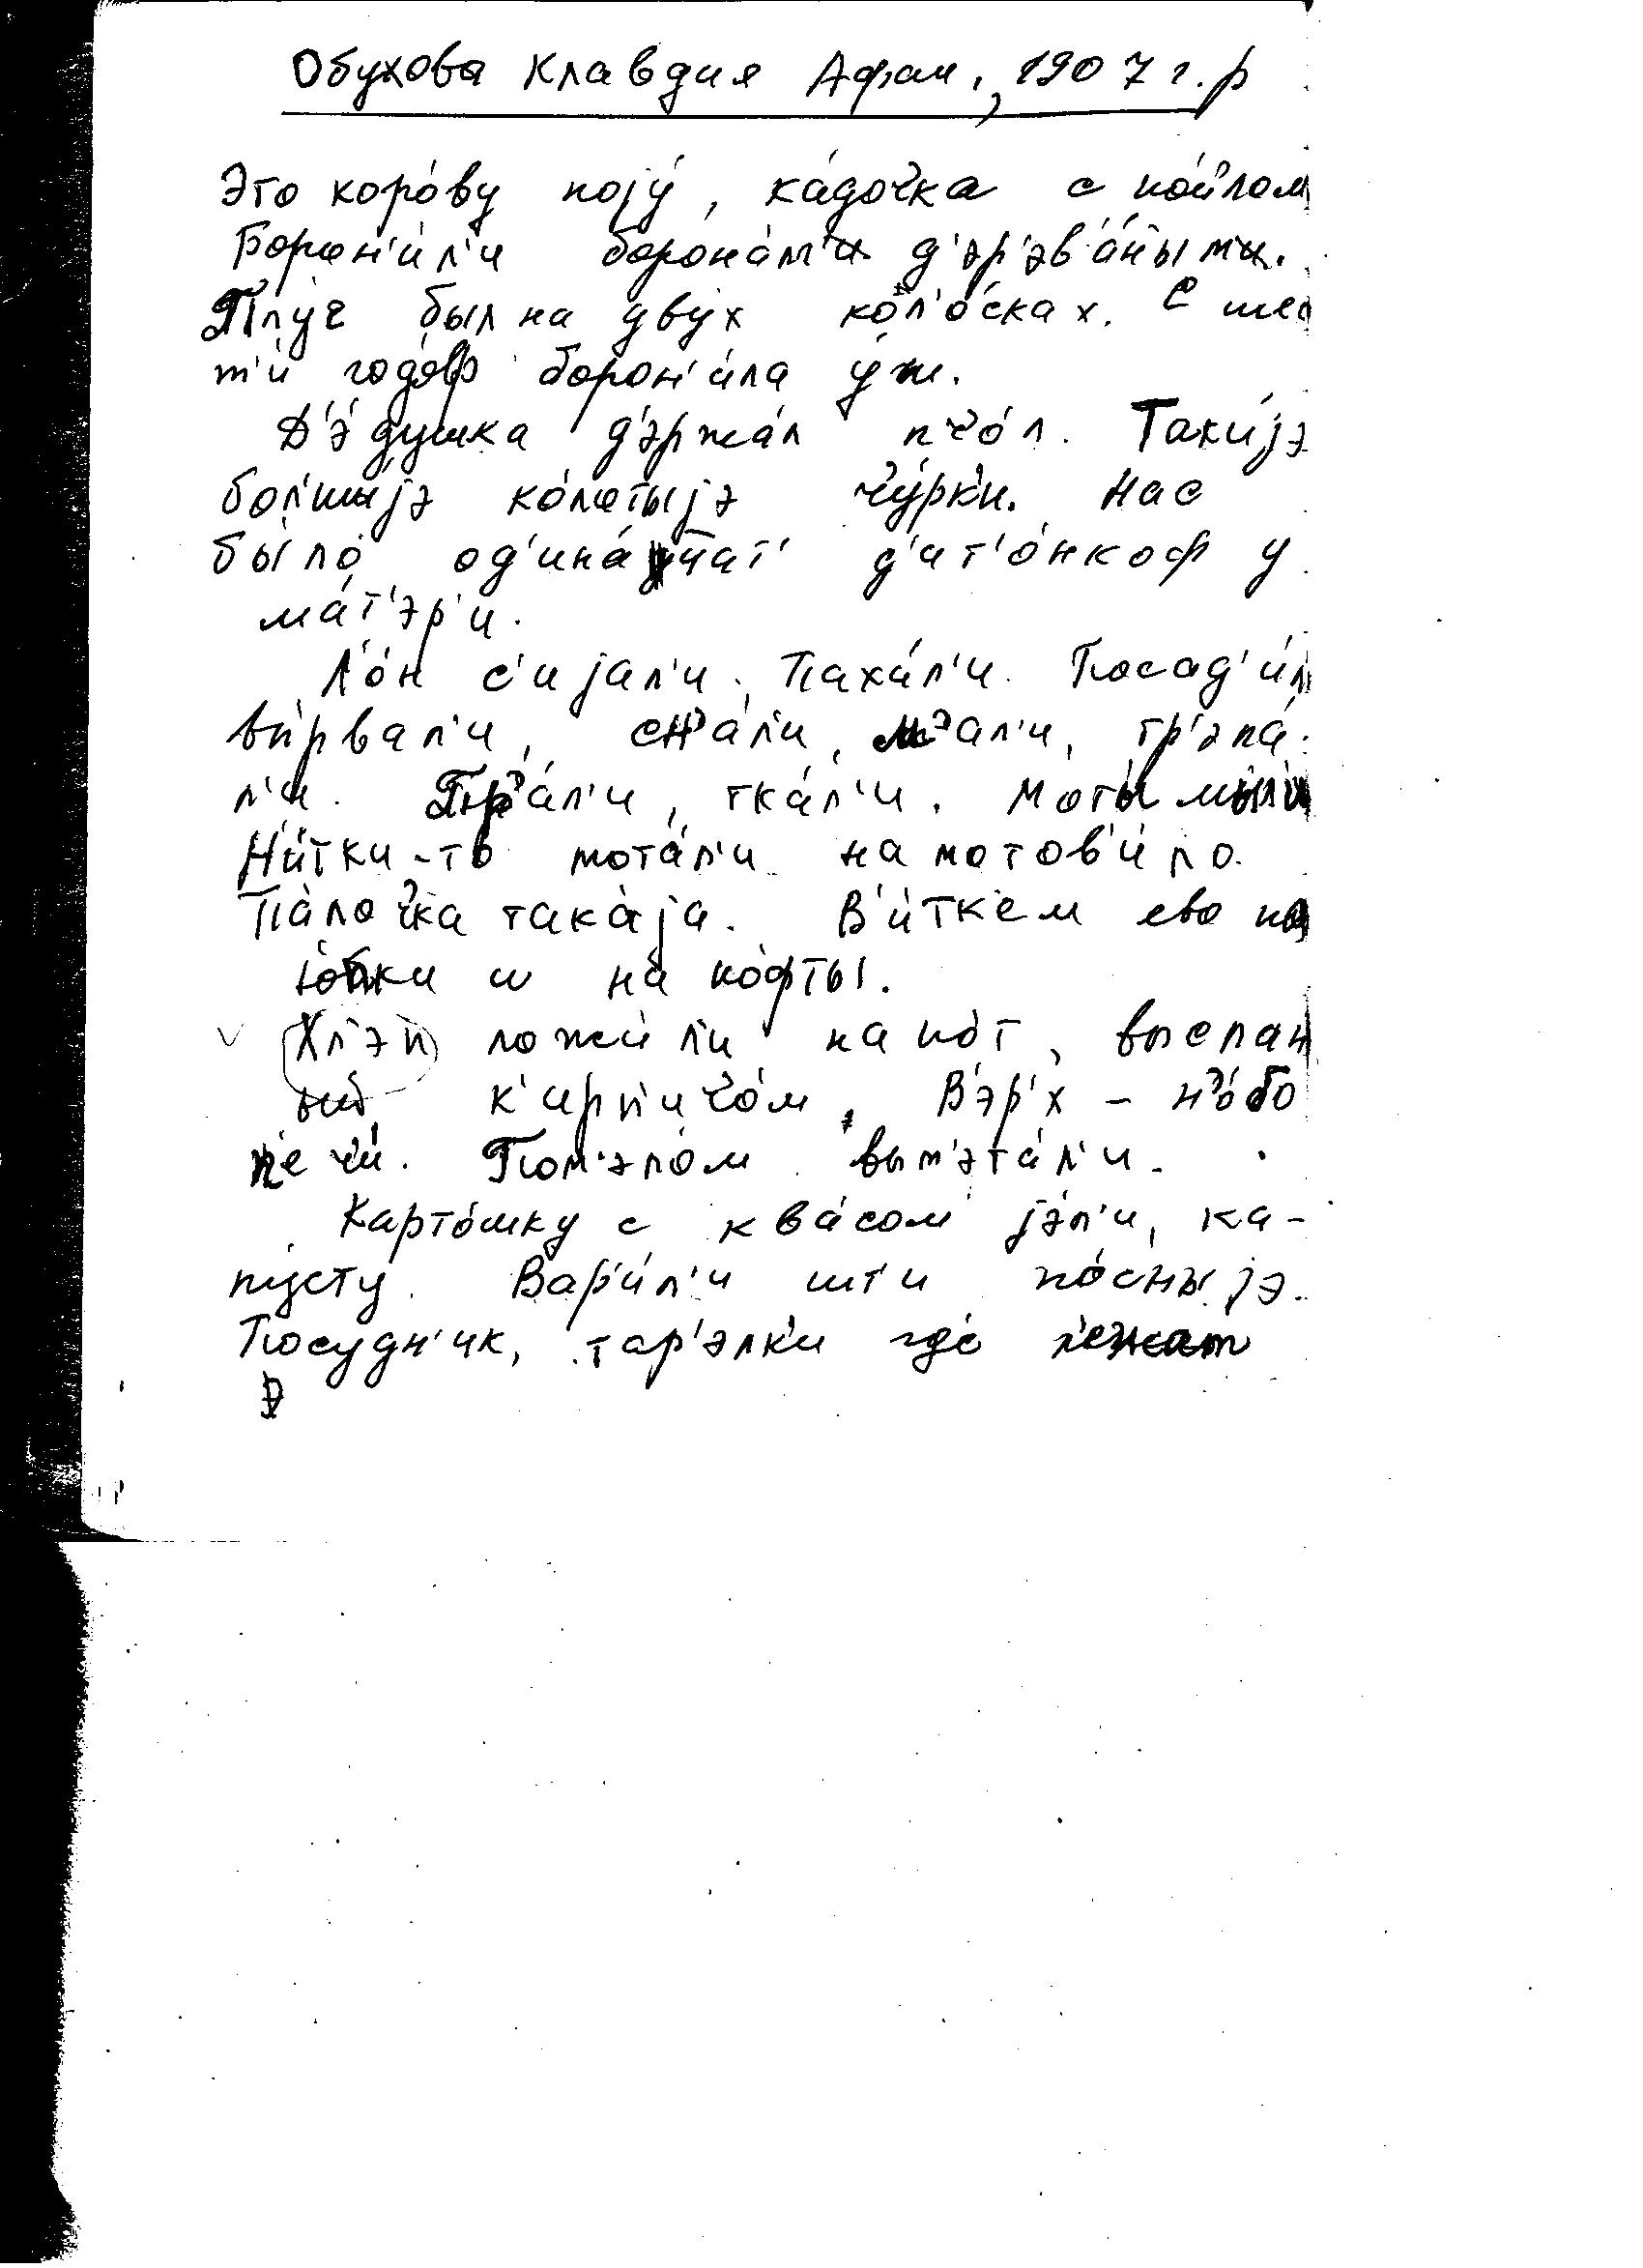 Обухова Клавдия Афан., 1907 г.р
Это коро́ву поjу́, ка́дочка с по́йлом
Борон'и́л'и борона́м'и д'эр'эв'а́ными.
Плуг был на двух кол'о́сках. С шес
т'и́ годо́ф борон'и́ла у́ж.
Д'э́душка д'эржа́л пчо́л. Таки́jэ
бол'шы́jэ ко́лотыjэ чу́рк'и. Нас
бы́ло од'ина́цат' д'ит'о́нкоф у
ма́т'эр'и.
Л'о́н с'иjал'и. Паха́л'и. Посад'и́л
вы́рвал'и, м'а́л'и, тр'эпа́-
л'и. Пр'а́л'и, тка́л'и. Моты́ мы́л'и
Ни́тки-то мота́л'и на мотов'и́ло.
Па́лочка така́jа. В'и́ткем ево на
ю́пки и на ко́фты.
Хл'эп ложи́л'и на по́т, выслан
ый к'ирп'ичо́м. В'эр'х – н'о́бо
печи́. Пом'эло́м вым'эта́л'и.
Карто́шку с ква́сом jэ́л'и, ка-
пусту. Вар'и́л'и шт'и по́сныjэ.
Посудн'ик, тар'элк'и где лежат